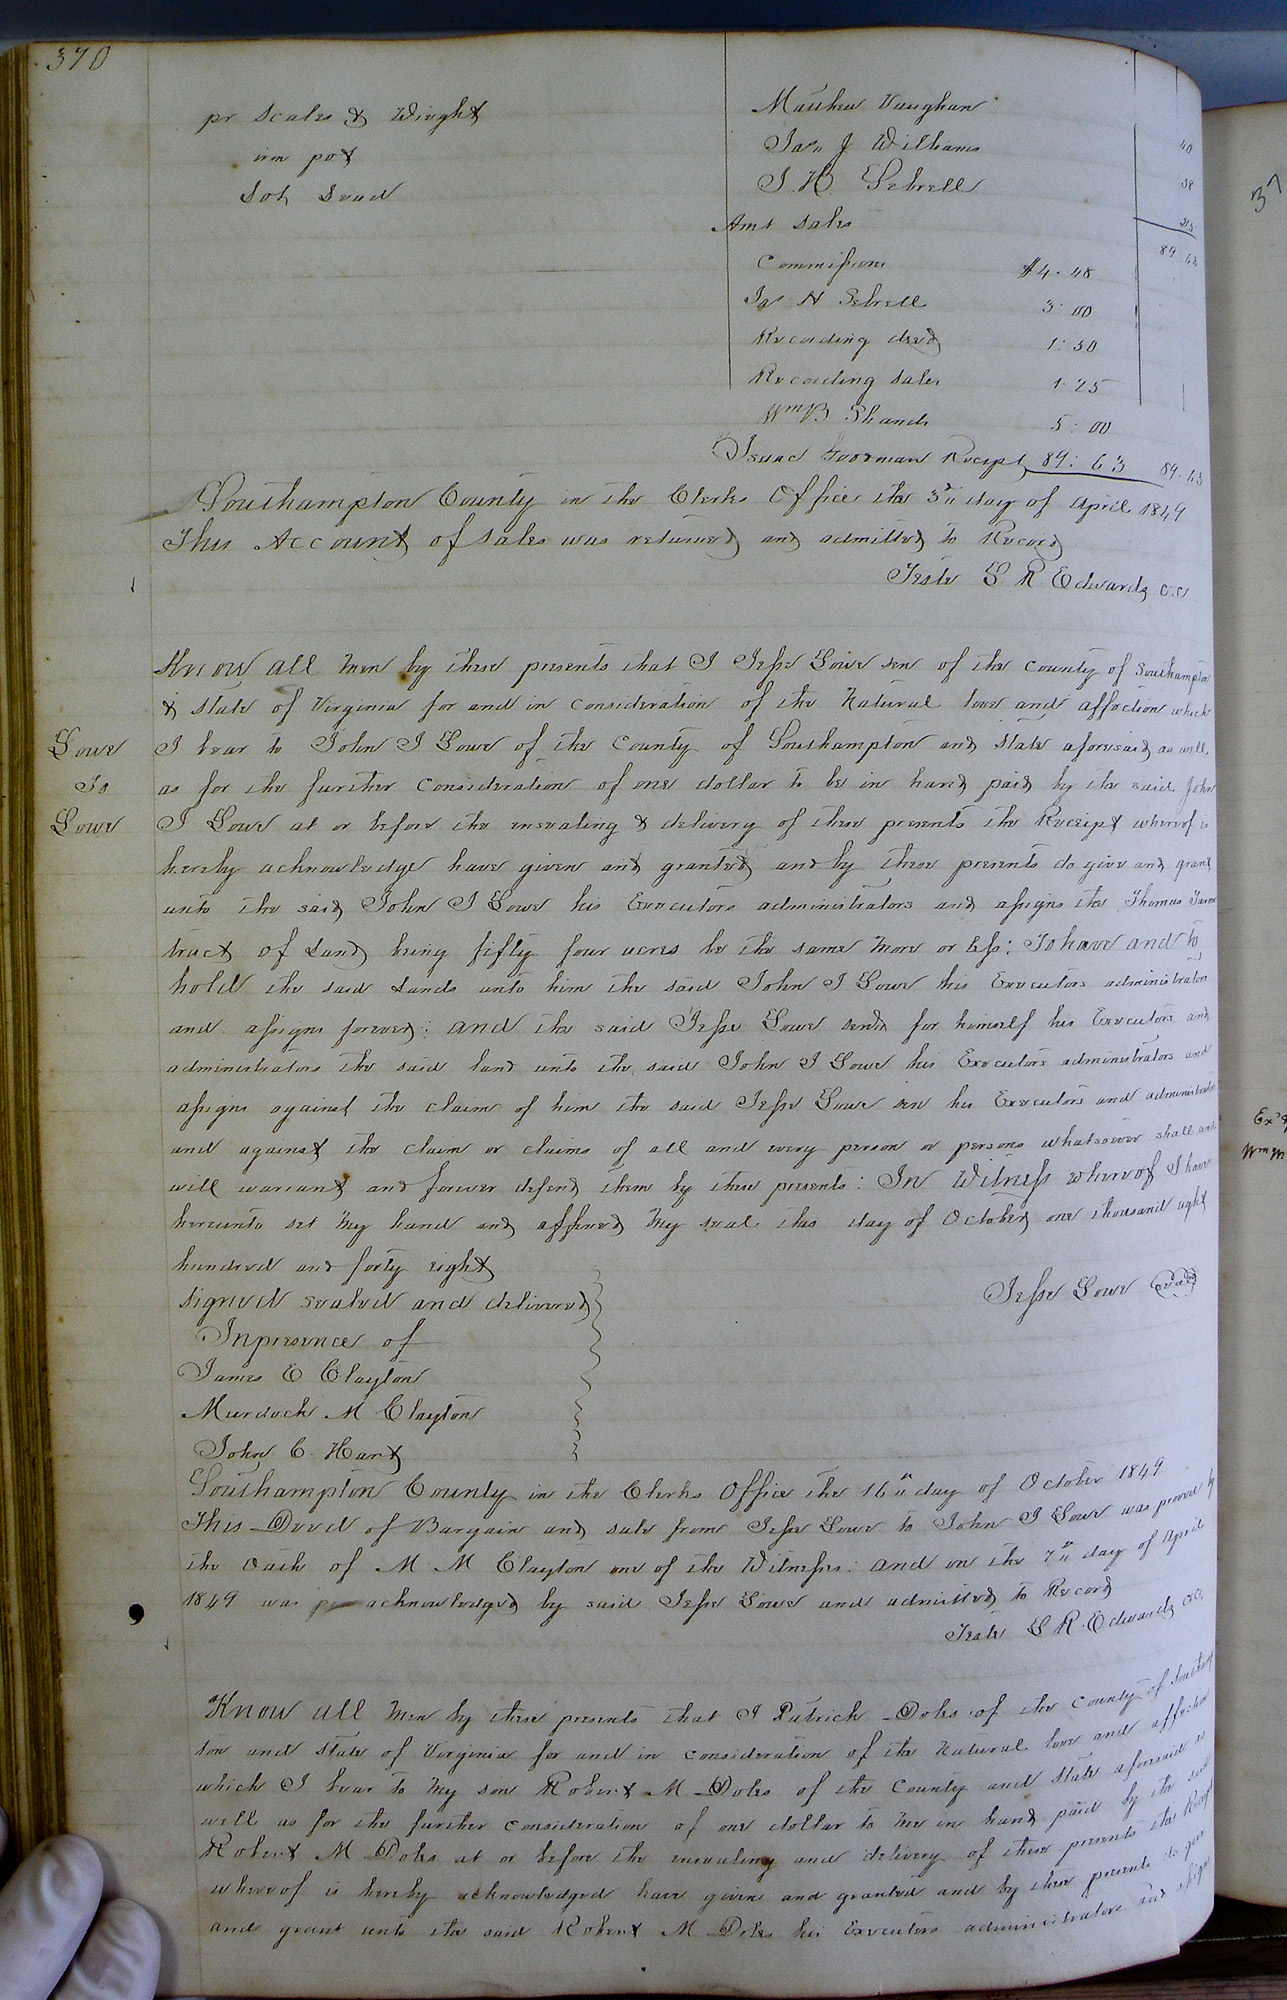 370
pr Scales & Weight Matthew Vaughan
iron pot Jas J Williams 40
Lot Lead J. H. Sebrell 38
Amt Sales
Commissions $4.48 89 63
Jas H Sebrell 3:00
Recording deed 1:50
Recording sales 1.25
Wm B Shands 5:00
Isaac Receipt 89:63 89.63
Southampton County in the Clerks Office the 3" day of April 1849
This Account of sales was returned and admitted to Record
Teste L R Edwards C.C
Know all men by these presents that I Jesse Lowe sen of the County of Southampton
& State of Virginia for and in consideration of the Natural love and affection which
Lowe
To
Lowe
I bear to John J Lowe of the County of Southampton and State aforesaid as well
as for the further Consideration of one dollar to be in hand paid by the said John
J Lowe at or before the ensealing & delivery of these presents the Receipt whereof is
hereby acknowledge have given and granted and by these presents do give and grant
unto the said John J Lowe his Executors administrators and assigns the Thomas
tract of Land being fifty four acres be the same more or less: To have and to
hold the said Lands unto him the said John J Lowe his Executors administrators
and assigns forever: and the said Jesse Lowe send for himself his Executors and
administrators the said land unto the said John J Lowe his Executors administrators and
assigns against the claim of him the said Jesse Lowe sen his Executors and administrators
and against the claim or claims of all and every person or persons whatsoever shall and
will warrant and forever defend them by these presents: In Witness whereof I have
hereunto set my hand and affixed my seal this day of October one thousand eight
hundred and forty eight
Jesse Lowe seal
signed sealed and delivered
In presence of
James E Clayton
Murdock M Clayton
John C. Hart
Southampton County in the Clerks Office the 16" day of October 1849
This Deed of Bargain and sale from Jesse Lowe to John J Lowe was proved by
the Oath of M M Clayton one of the Witnesses: and on the 7" day of April
1849 was acknowledged by said Jesse Lowe and admitted to Record
Teste L R Edwards C.C.
Know all men by these presents that I Patrick Doles of the County of Southamp
ton and State of Virginia for and in consideration of the Natural love and affection
which I bear to my son Robert M Doles of the County and State aforesaid as
well as for the further consideration of one dollar to me in hand paid by the said
Robert M Doles at or before the ensealing and delivery of these presents the Receipt
whereof is hereby acknowledged have given and granted and by these presents do give
and grant unto the said Robert M Doles his Executors administrators and assigns
37